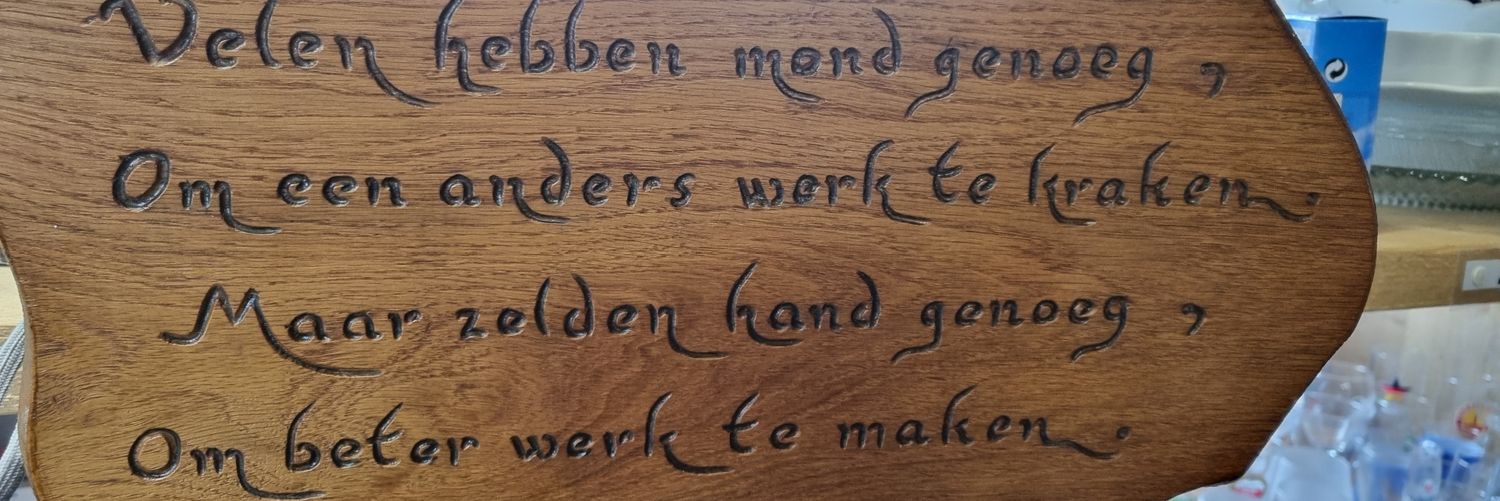 Velen hebben mond genoeg ,
Om een anders werk te kraken.
Maar zelden hand genoeg ,
Om beter werk te maken .